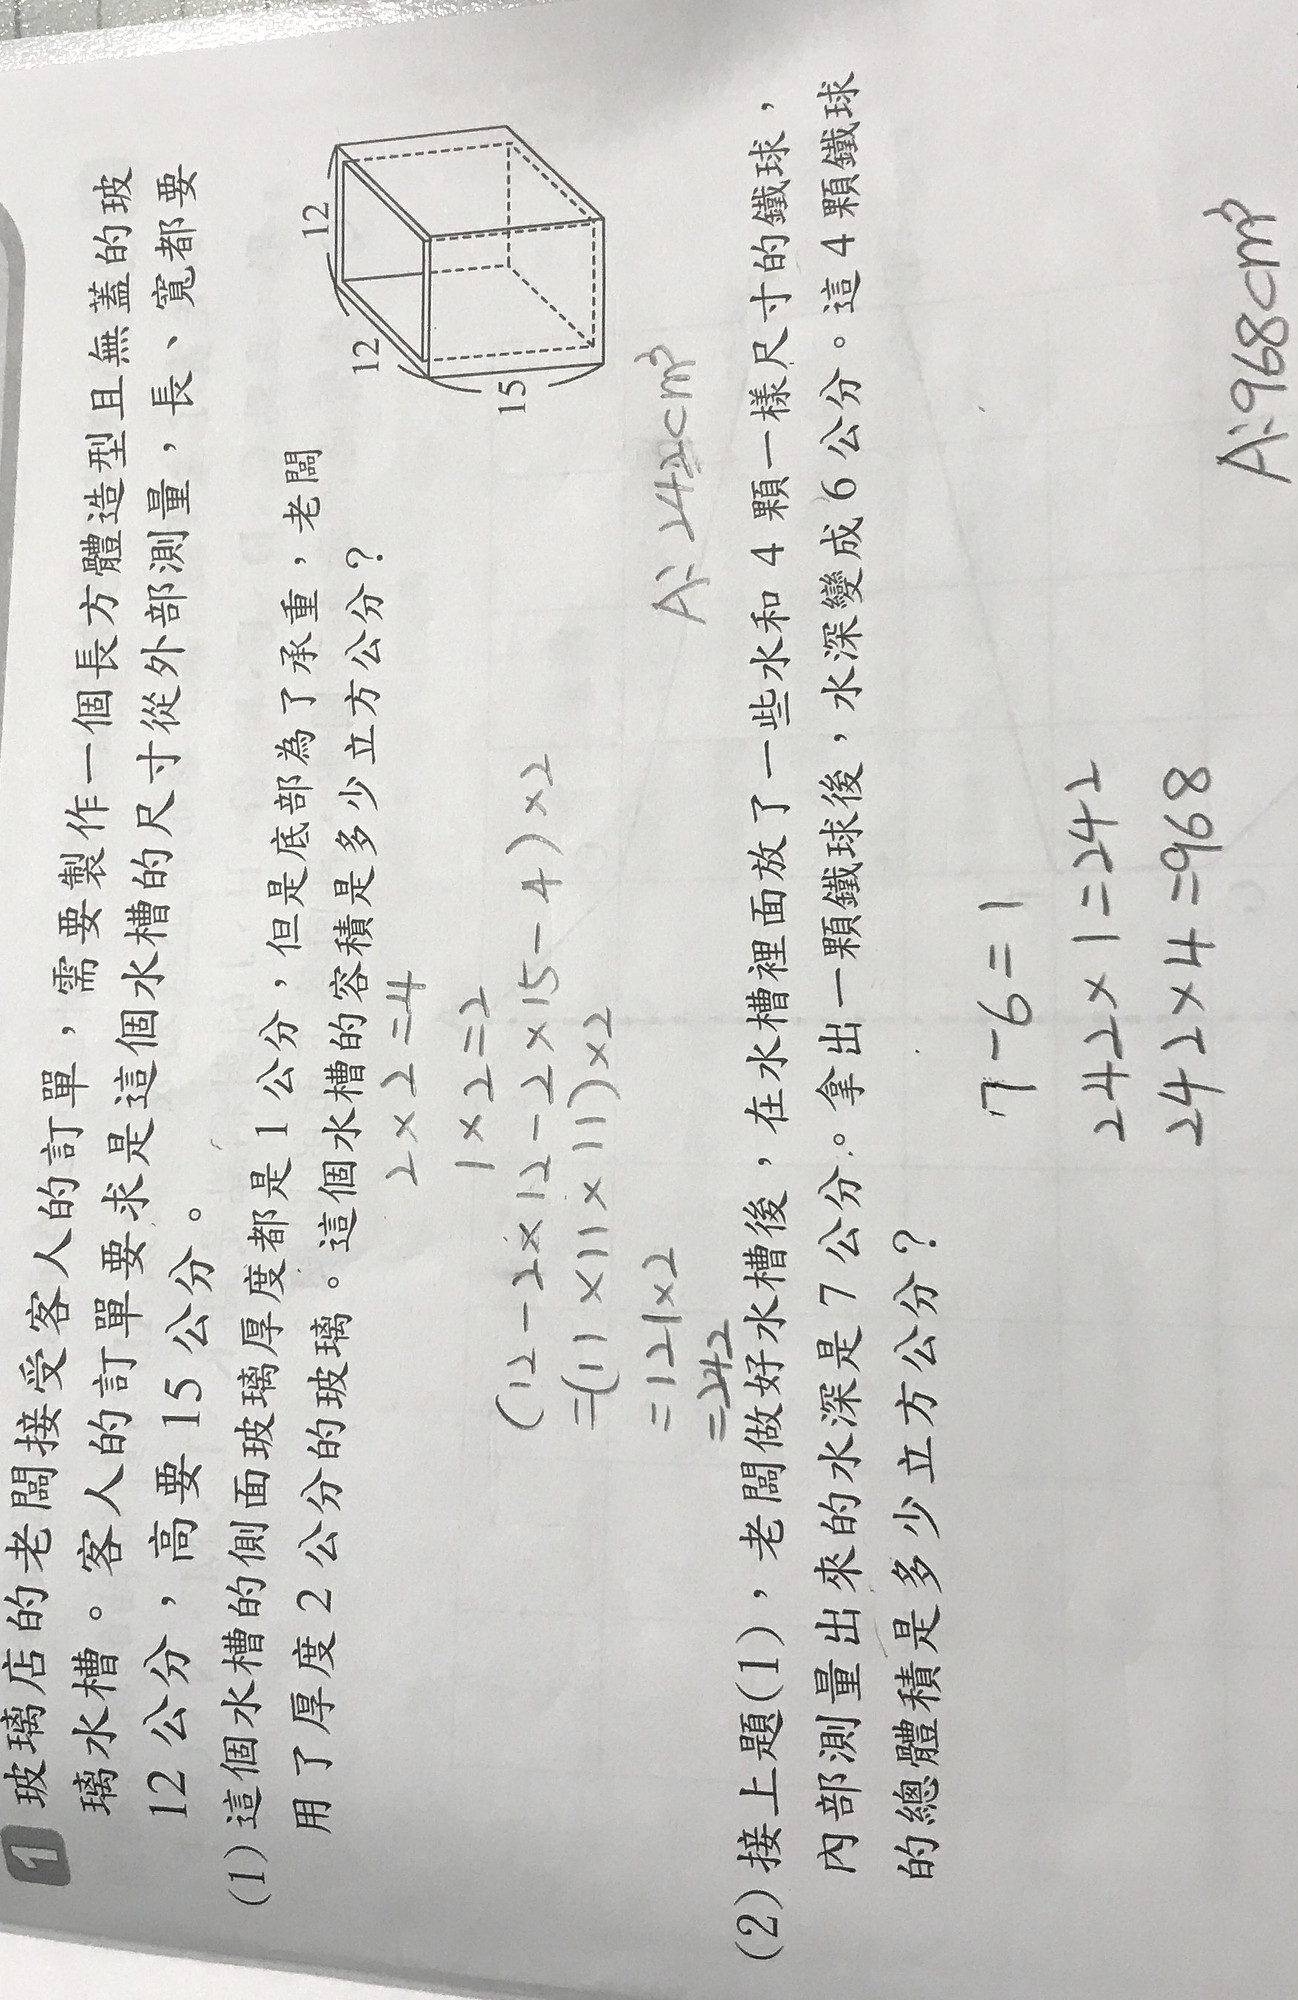 1 玻璃店的老闆接受客人的訂單，需要製作一個長方體造型且無蓋的玻
璃水槽。客人的訂單要求是這個水槽的尺寸從外部測量，長、寬都要
12公分，高要15公分。
(1)這個水槽的側面玻璃厚度都是1公分，但是底部為了承重，老闆
用了厚度2公分的玻璃。這個水槽的容積是多少立方公分？
12
12
15
2×2=4
1×2=2
(12-2×12-2×15-4)×2
=(11×11×11)×2
=121×2
=242
A:242cm³
(2)接上題(1)，老闆做好水槽後，在水槽裡面放了一些水和4顆一樣尺寸的鐵球，
內部測量出來的水深是7公分。拿出一顆鐵球後，水深變成6公分。這4顆鐵球
的總體積是多少立方公分？
7-6=1
242×1=242
242×4=968
A:968cm³